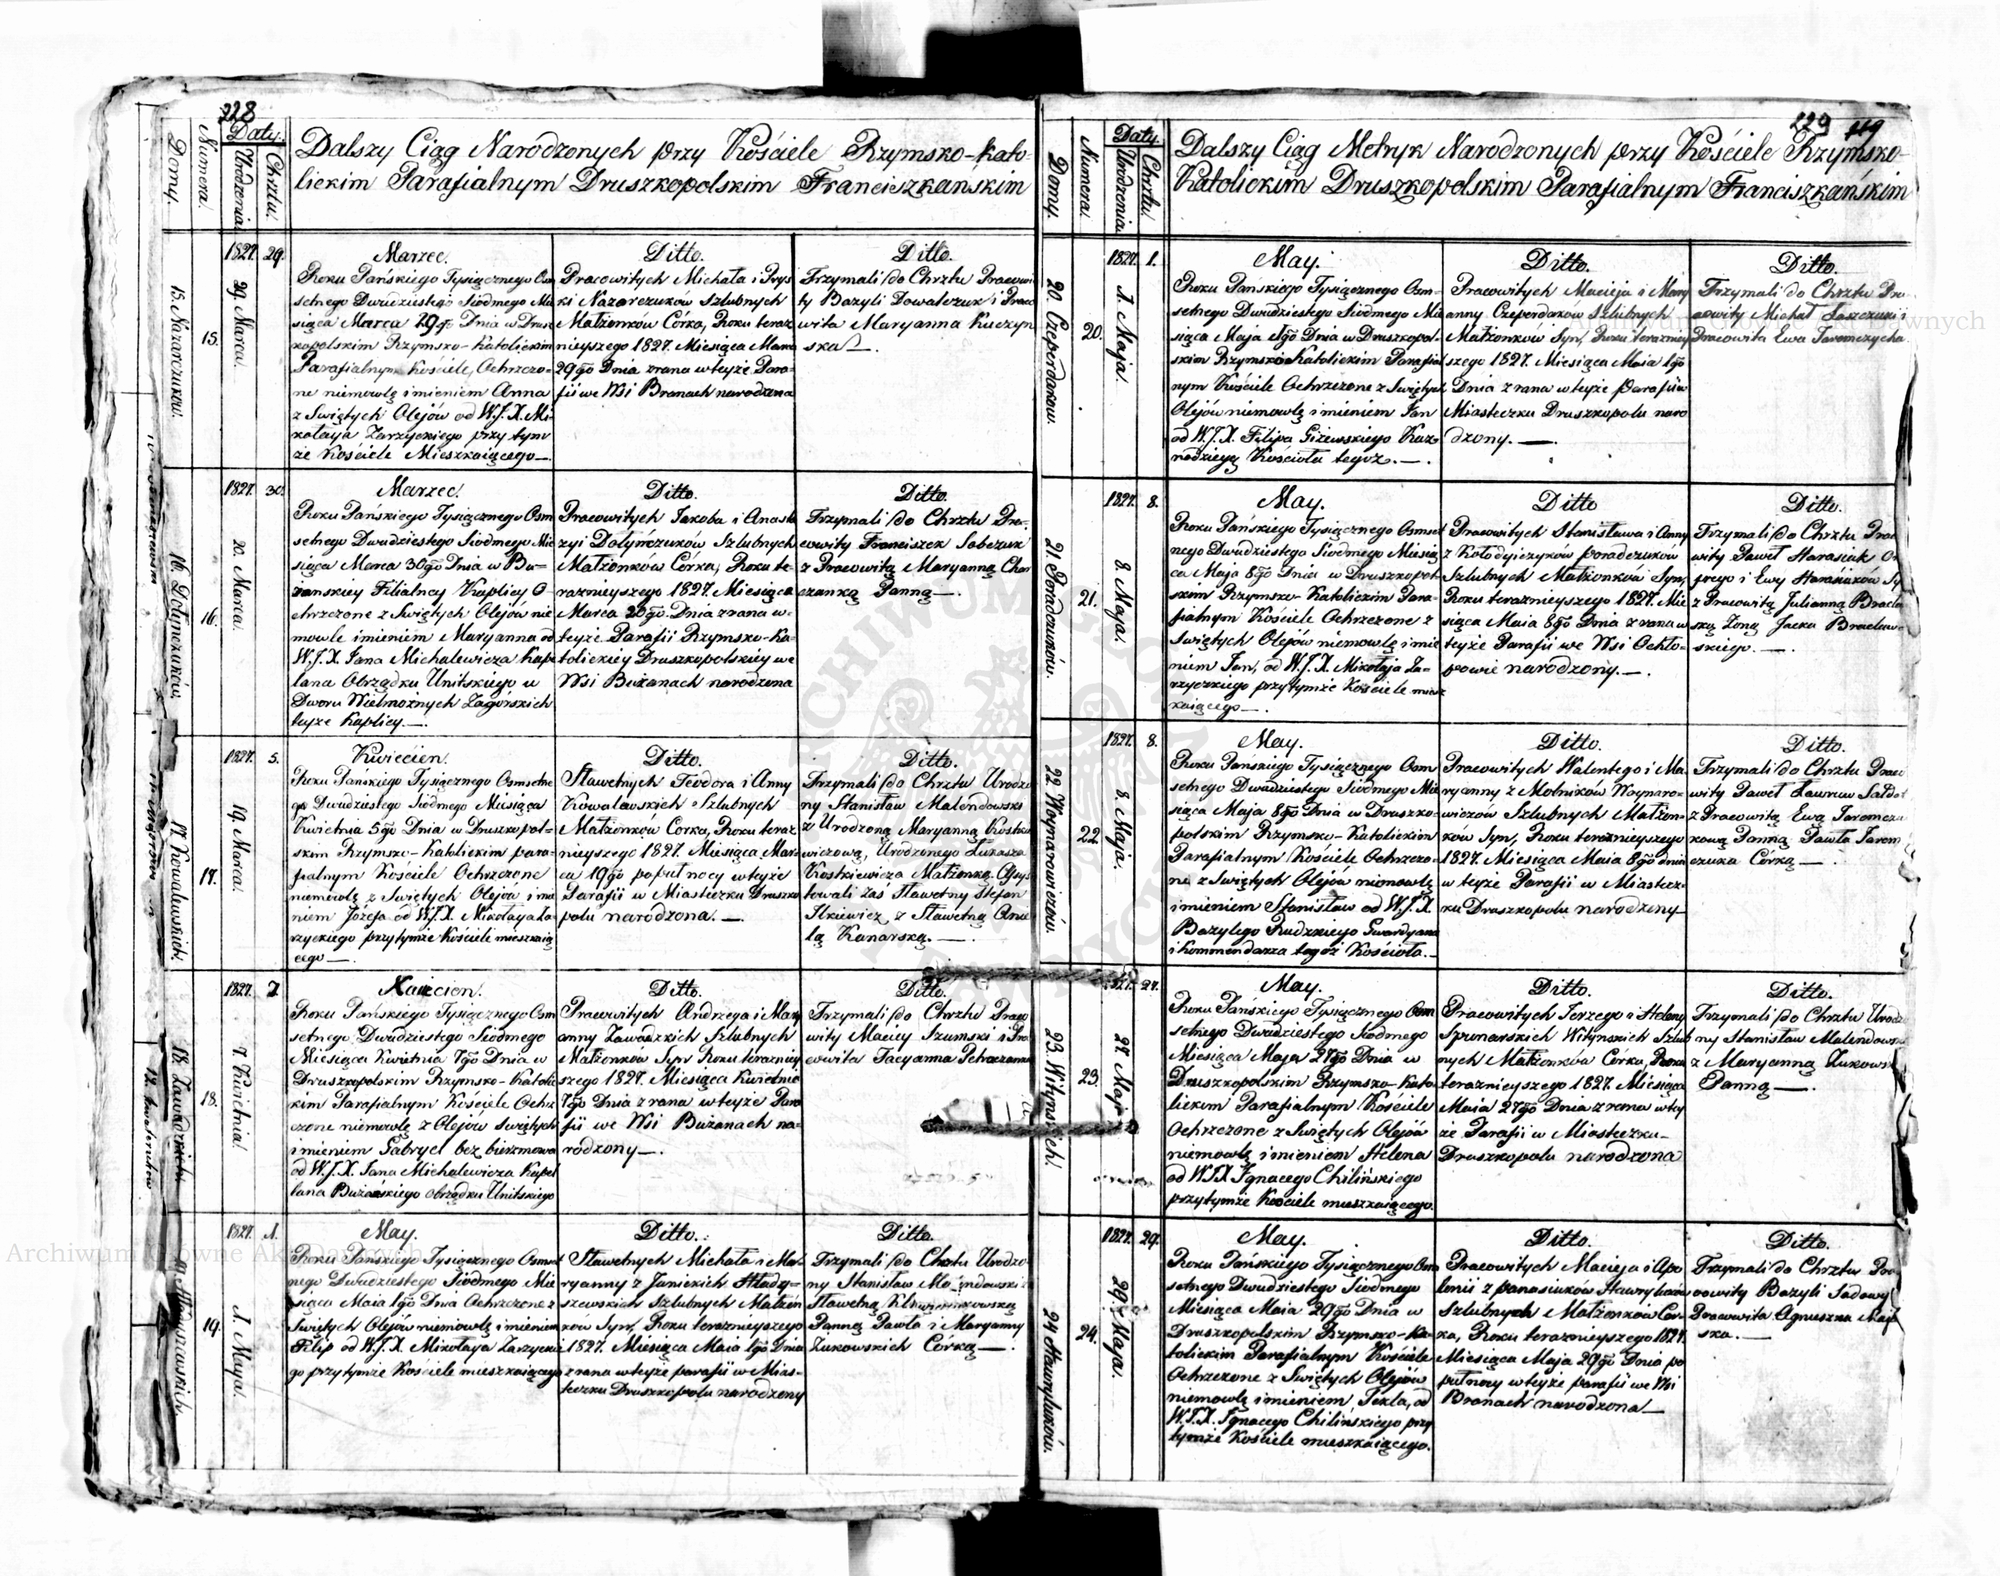 228
Domy.
Numera.
Daty.
Urodzenia
Chrztu.
Dalszy Ciąg Narodzonych przy Kościele Rzymsko-Kato-
lickim Parafialnym Druszkopolskim Franciszkańskim
15. Nazarczuków.
15.
1827. 29.
29. Marca.
Marzec.
Roku Pańskiego Tysiącznego Osm
setnego Dwudziestego Siodmego Mie
siąca Marca 29go Dnia w Drusz
kopolskim Rzymsko-Katolickim
Parafialnym Kościele, Ochrzczo-
ne niemowlę imieniem Anna
z Swiętych Olejów od W.J.X. Mi
kołaja Zarzyckiego przy tym
że Kościele Mieszkaiącego —.
Ditto.
Pracowitych Michała i Prys
ki Nazarczuków Szlubnych
Małżonków Córka, Roku teraz
nieyszego 1827. Miesiąca Marca
29go Dnia zrana w teyże Para-
fii we Wsi Branach narodzona
Ditto.
Trzymali do Chrztu Pracowi
ty Bazyli Dowalczuk i Praco
wita Maryanna Kuczyn
ska —.
16. Dołymczuków.
16.
1827. 30.
20. Marca.
Marzec.
Roku Pańskiego Tysiącznego Osm
setnego Dwudziestego Siodmego Mie
siąca Marca 30go Dnia w Bu-
żanskiey Filialney Kaplicy O-
chrzczone z Swiętych Olejów nie
mowle imieniem Maryanna od
W.J.X. Jana Michalewicza Kape
lana Obrządku Unitskiego w
Dworu Wielmożnych Zagórskich
teyże Kaplicy. —.
Ditto.
Pracowitych Jakoba i Anasta
zyi Dołymczuków Szlubnych
Małżonków Córka, Roku te-
raznieyszego 1827. Miesiąca
Marca 20go Dnia zrana w-
teyże Parafii Rzymsko-Ka-
tolickiey Druszkopolskiey we
Wsi Bużanach narodzona
Ditto.
Trzymali do Chrztu Pra-
cowity Franciszek Sobczuk
z Pracowitą Maryanną Char
czanką Panną —.
17. Kowalewskich.
17.
1827. 5.
19. Marca.
Kwiecień.
Roku Pańskiego Tysiącznego Osmsetne
go Dwudziestego Siodmego Miesiąca
Kwietnia 5go Dnia w Druszkopol-
skim Rzymsko-Katolickim para-
fialnym Kościele Ochrzczone
niemowlę z Swiętych Olejów imie
niem Józefa od W.J.X. Mikołaja Za
rzyckiego przytymże Kościele mieszkaią
cego —.
Ditto.
Sławetnych Teodora i Anny
Kowalewskich Szlubnych
Małżonków Corka, Roku teraz
nieyszego 1827. Miesiąca Mar-
ca 19go popułnocy w teyże
Parafii w Miasteczku Druszko
polu narodzona. —.
Ditto.
Trzymali do Chrztu Urodzo
ny Stanisław Malendowski
z Urodzoną Maryanną Kostkie
wiczową, Urodzonego Łukasza
Kostkiewicza Małżonką. Assys
towali zaś Sławetny Stefan
Ilkiewicz z Sławetną Anie
lą Kanarską. —.
18. Zawadzkich.
18.
1827. 7.
7. Kwietnia.
Kwiecien.
Roku Pańskiego Tysiącznego Osm
setnego Dwudziestego Siodmego
Miesiąca Kwietnia 7go Dnia w
Druszkopolskim Rzymsko-Katolic
kim Parafialnym Kościele Ochrz
czone niemowlę z Olejów Swiętych
imieniem Gabryel bez bierzmowa
od W.J.X. Jana Michalewicza Kapel
lana Bużańskiego obrządku Unitskiego
Ditto.
Pracowitych Andrzeja i Mary
anny Zawadzkich Szlubnych
Małżonków Syn Roku terazniey
szego 1827. Miesiąca Kwietnia
7go Dnia zrana w teyże Para
fii we Wsi Bużanach na-
rodzony —.
Ditto.
Trzymali do Chrztu Praco
wity Maciey Szumski i Pra
cowita Tacyanna
19.
1827. 1.
1. Maya.
May.
Roku Pańskiego Tysiącznego Osmset
nego Dwudziestego Siodmego Mie
siąca Maia 1go Dnia Ochrzczone z
Swiętych Olejów niemowlę imieniem
Filip od W.J.X. Mikołaya Zarzyckie
go przytymże Kościele mieszkaiącego
Ditto.
Sławetnych Michała i Ma-
ryanny z Janickich Włady-
szewskich Szlubnych Małżon
ków Syn, Roku teraznieyszego
1827. Miesiąca Maia 1go Dnia
zrana w teyże parafii w Mias-
teczku Druszkopolu narodzony
Ditto.
Trzymali do Chrztu Urodzo
ny Stanisław Malendowski z
Sławetną
Panną Pawła i Maryanny
Żukowskich Córką —.
229
119
Domy.
Numera.
Daty.
Urodzenia
Chrztu.
Dalszy Ciąg Metryk Narodzonych przy Kościele Rzymsko-
Katolickim Druszkopolskim Parafialnym Franciszkańskim
20. Czeperdaków.
20.
1827. 1.
1. Maja.
May.
Roku Pańskiego Tysiącznego Osm-
setnego Dwudziestego Siodmego Mie
siąca Maja 1go Dnia w Druszkopol-
skim Rzymsko Katolickim Parafial
nym Kościele Ochrzczone z Swiętych
Olejów niemowlę imieniem Jan
od W.J.X. Filipa Giżewskiego Kaz-
nodzieję Kościoła tegoż. —.
Ditto.
Pracowitych Macieja i Mary
anny Czeperdaków Szlubnych
Małżonków Syn, Roku teraźniey
szego 1827. Miesiąca Maia 1go
Dnia zrana w teyże Parafii w
Miasteczku Druszkopolu naro
dzony. —.
Ditto.
Trzymali do Chrztu Pra
cowity Michał Jaszczuk i
Pracowita Ewa Jaromczycha
21. Poradczuków.
21.
1827. 8.
8. Maja.
May.
Roku Pańskiego Tysiącznego Osmset
nego Dwudziestego Siodmego Miesią
ca Maja 8go Dnia w Druszkopol
skim Rzymsko-Katolickim Para-
fialnym Kościele Ochrzczone z
Swiętych Olejów niemowlę imie
niem Jan, od W.J.X. Mikołaja Za-
rzyczkiego przytymże Kościele miesz
kaiącego —.
Ditto
Pracowitych Stanisława i Anny
z Kołodyiczyków poradczuków
Szlubnych Małżonków Syn,
Roku teraznieyszego 1827. Mie
siąca Maia 8go Dnia zrana w
teyże Parafii we Wsi Ochło-
powie narodzony. —.
Ditto.
Trzymali do Chrztu Praco
wity Paweł Harasiuk On
frego i Ewy Harasiuków Sy
z Pracowitą Julianną Braclaw
ską Żoną Jacka Braclaw-
skiego. —.
22. Woynarowiczów.
22.
1827. 8.
8. Maja.
May.
Roku Pańskiego Tysiącznego Osm
setnego Dwudziestego Siodmego Mie
siąca Maja 8go Dnia w Druszko-
polskim Rzymsko-Katolickim
Parafialnym Kościele Ochrzczo-
ne z Swiętych Olejów niemowlę
imieniem Stanisław od W.J.X.
Bazylego Rudzkiego Gwardyana
i Kommendarza tegoż Kościoła. —
Ditto.
Pracowitych Walentego i Ma-
ryanny z Motników Woynaro-
wiczów Szlubnych Małżon-
ków Syn, Roku teraznieyszego
1827. Miesiąca Maia 8go dnia
w teyże Parafii w Miastecz-
ku Druszkopolu narodzony —
Ditto.
Trzymali do Chrztu Praco
wity Paweł
z Pracowitą Ewą Jaromczu
kową Panną Pawła Jarom
czuka Corką —.
23. Wityńskich.
23.
1827. 27.
27. Maja
May.
Roku Pańskiego Tysiącznego Osm
setnego Dwudziestego Siodmego
Miesiąca Maja 27go Dnia w
Druszkopolskim Rzymsko-Kato-
lickim Parafialnym Kościele
Ochrzczone z Swiętych Olejów
niemowlę imieniem Helena
od W.J.X. Ignacego Chilińskiego
przytymże Kościele mieszkaiącego.
Ditto.
Pracowitych Jerzego i Heleny
Spunarskich Wityńskich Szlub
nych Małżonków Corka, Roku
teraznieyszego 1827. Miesiąca
Maia 27go Dnia zrana w tey
że Parafii w Miasteczku-
Druszkopolu narodzona
Ditto.
Trzymali do Chrztu Urodzo
ny Stanisław Malendows
z Maryanną Żukowsk
Panną —.
24. Hawryluków.
24.
1827. 29.
29. Maja.
May.
Roku Pańskiego Tysiącznego Osm
setnego Dwudziestego Siodmego
Miesiąca Maia 29go Dnia w
Druszkopolskim Rzymsko-Ka-
tolickim Parafialnym Kościele
Ochrzczone z Swiętych Olejów
niemowlę imieniem, Tekla, od
W.J.X. Ignacego Chilińskiego przy
tymże Kościele mieszkaiącego.
Ditto.
Pracowitych Macieja i Apo
lonii z panasiuków Hawryluków
Szlubnych Małżonków Cor-
ka, Roku teraznieyszego 1827.
Miesiąca Maja 29go Dnia po
pułnocy w teyże parafii we Wsi
Branach narodzona —
Ditto.
Trzymali do Chrztu Pra-
cowity Bazyli Sadowy
Pracowita Agnieszka
ska. —
Archiwum Główne Akt Dawnych
Archiwum Główne Akt Dawnych